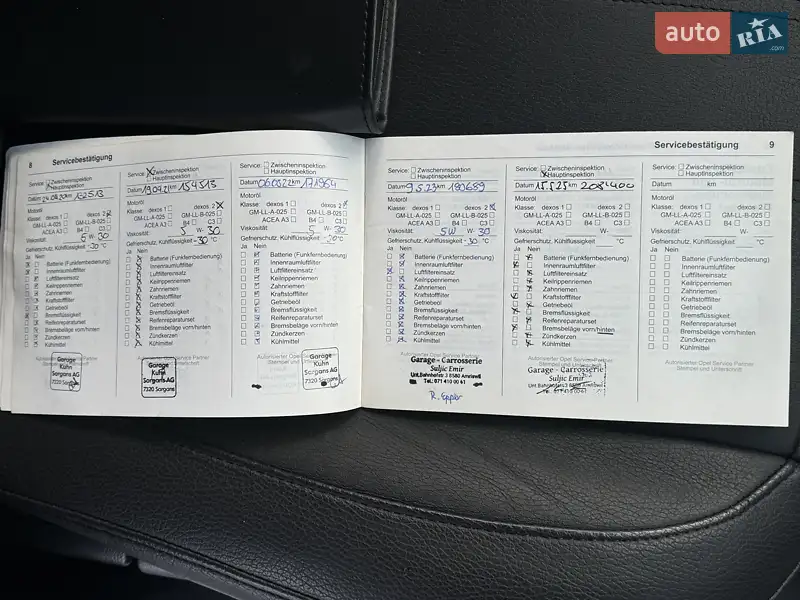 auto RIA .com
8 Servicebestätigung
Service: Zwischeninspektion
Hauptinspektion
Datum 24.09.20 km
Motoröl
Klasse: dexos 1 dexos 2
GM-LL-A-025 GM-LL-B-025
ACEA A3 B4 C3
Viskosität: 5 W- 30
Gefrierschutz, Kühlflüssigkeit -30 °C
Ja Nein
Batterie (Funkfernbedienung)
Innenraumluftfilter
Luftfiltereinsatz
Keilrippenriemen
Zahnriemen
Kraftstofffilter
Getriebeöl
Bremsflüssigkeit
Reifenreparaturset
Bremsbeläge vorn/hinten
Zündkerzen
Kühlmittel
Garage
Kuhn
Sargans AG
7320 Sargans
Service: Zwischeninspektion
Hauptinspektion
Datum 19.04.21 km 154513
Motoröl
Klasse: dexos 1 dexos 2
GM-LL-A-025 GM-LL-B-025
ACEA A3 B4 C3
Viskosität: 5 W- 30
Gefrierschutz, Kühlflüssigkeit -30 °C
Ja Nein
Batterie (Funkfernbedienung)
Innenraumluftfilter
Luftfiltereinsatz
Keilrippenriemen
Zahnriemen
Kraftstofffilter
Getriebeöl
Bremsflüssigkeit
Reifenreparaturset
Bremsbeläge vorn/hinten
Zündkerzen
Kühlmittel
Garage
Kuhn
Sargans AG
7320 Sargans
Service: Zwischeninspektion
Hauptinspektion
Datum 060522 km 171964
Motoröl
Klasse: dexos 1 dexos 2
GM-LL-A-025 GM-LL-B-025
ACEA A3 B4 C3
Viskosität: 5 W- 30
Gefrierschutz, Kühlflüssigkeit -30 °C
Ja Nein
Batterie (Funkfernbedienung)
Innenraumluftfilter
Luftfiltereinsatz
Keilrippenriemen
Zahnriemen
Kraftstofffilter
Getriebeöl
Bremsflüssigkeit
Reifenreparaturset
Bremsbeläge vorn/hinten
Zündkerzen
Kühlmittel
Garage
Kuhn
Sargans AG
7320 Sargans
Servicebestätigung 9
Service: Zwischeninspektion
Hauptinspektion
Datum 9.5.23 km 190689
Motoröl
Klasse: dexos 1 dexos 2
GM-LL-A-025 GM-LL-B-025
ACEA A3 B4 C3
Viskosität: 5W W- 30
Gefrierschutz, Kühlflüssigkeit -30 °C
Ja Nein
Batterie (Funkfernbedienung)
Innenraumluftfilter
Luftfiltereinsatz
Keilrippenriemen
Zahnriemen
Kraftstofffilter
Getriebeöl
Bremsflüssigkeit
Reifenreparaturset
Bremsbeläge vorn/hinten
Zündkerzen
Kühlmittel
Autorisierter Opel Service Partner
Garage - Carrosserie
Suljic Emir
Unt.Bahnhofstr.3 8580 Amriswil
Tel.: 071 410 00 61
R. Eppler
Service: Zwischeninspektion
Hauptinspektion
Datum 15.5.25 km
Motoröl
Klasse: dexos 1 dexos 2
GM-LL-A-025 GM-LL-B-025
ACEA A3 B4 C3
Viskosität: W-
Gefrierschutz, Kühlflüssigkeit °C
Ja Nein
Batterie (Funkfernbedienung)
Innenraumluftfilter
Luftfiltereinsatz
Keilrippenriemen
Zahnriemen
Kraftstofffilter
Getriebeöl
Bremsflüssigkeit
Reifenreparaturset
Bremsbeläge vorn/hinten
Zündkerzen
Kühlmittel
Autorisierter Opel Service Partner
Garage - Carrosserie
Suljic Emir
Unt.Bahnhofstr.3 8580 Amriswil
Tel.: 071 410 00 61
Service: Zwischeninspektion
Hauptinspektion
Datum km
Motoröl
Klasse: dexos 1 dexos 2
GM-LL-A-025 GM-LL-B-025
ACEA A3 B4 C3
Viskosität: W-
Gefrierschutz, Kühlflüssigkeit °C
Ja Nein
Batterie (Funkfernbedienung)
Innenraumluftfilter
Luftfiltereinsatz
Keilrippenriemen
Zahnriemen
Kraftstofffilter
Getriebeöl
Bremsflüssigkeit
Reifenreparaturset
Bremsbeläge vorn/hinten
Zündkerzen
Kühlmittel
Autorisierter Opel Service Partner
Stempel und Unterschrift